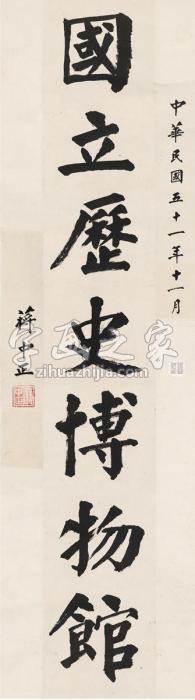 中華民國五十一年十一月
國立歷史博物館
蔣中正
字画之家
zihuazhijia.com